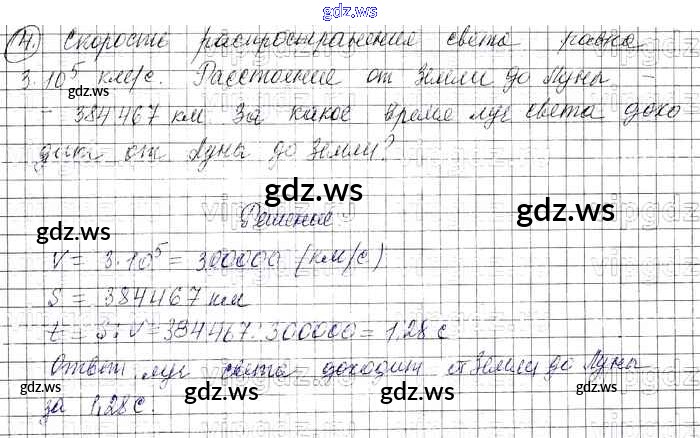 gdz.ws
4. Скорость распространения света равна
3·10⁵ км/с. Расстояние от Земли до Луны -
- 384 467 км. За какое время луч света дохо
дит от Луны до Земли?
gdz.ws
gdz.ws gdz.ws
Решение
V = 3·10⁵ = 300000 (км/с)
S = 384467 км
t = S : V = 384467 : 300000 = 1,28 с
Ответ: луч света доходит от Земли до Луны
gdz.ws gdz.ws gdz.ws
за 1,28 с.
gdz.ws